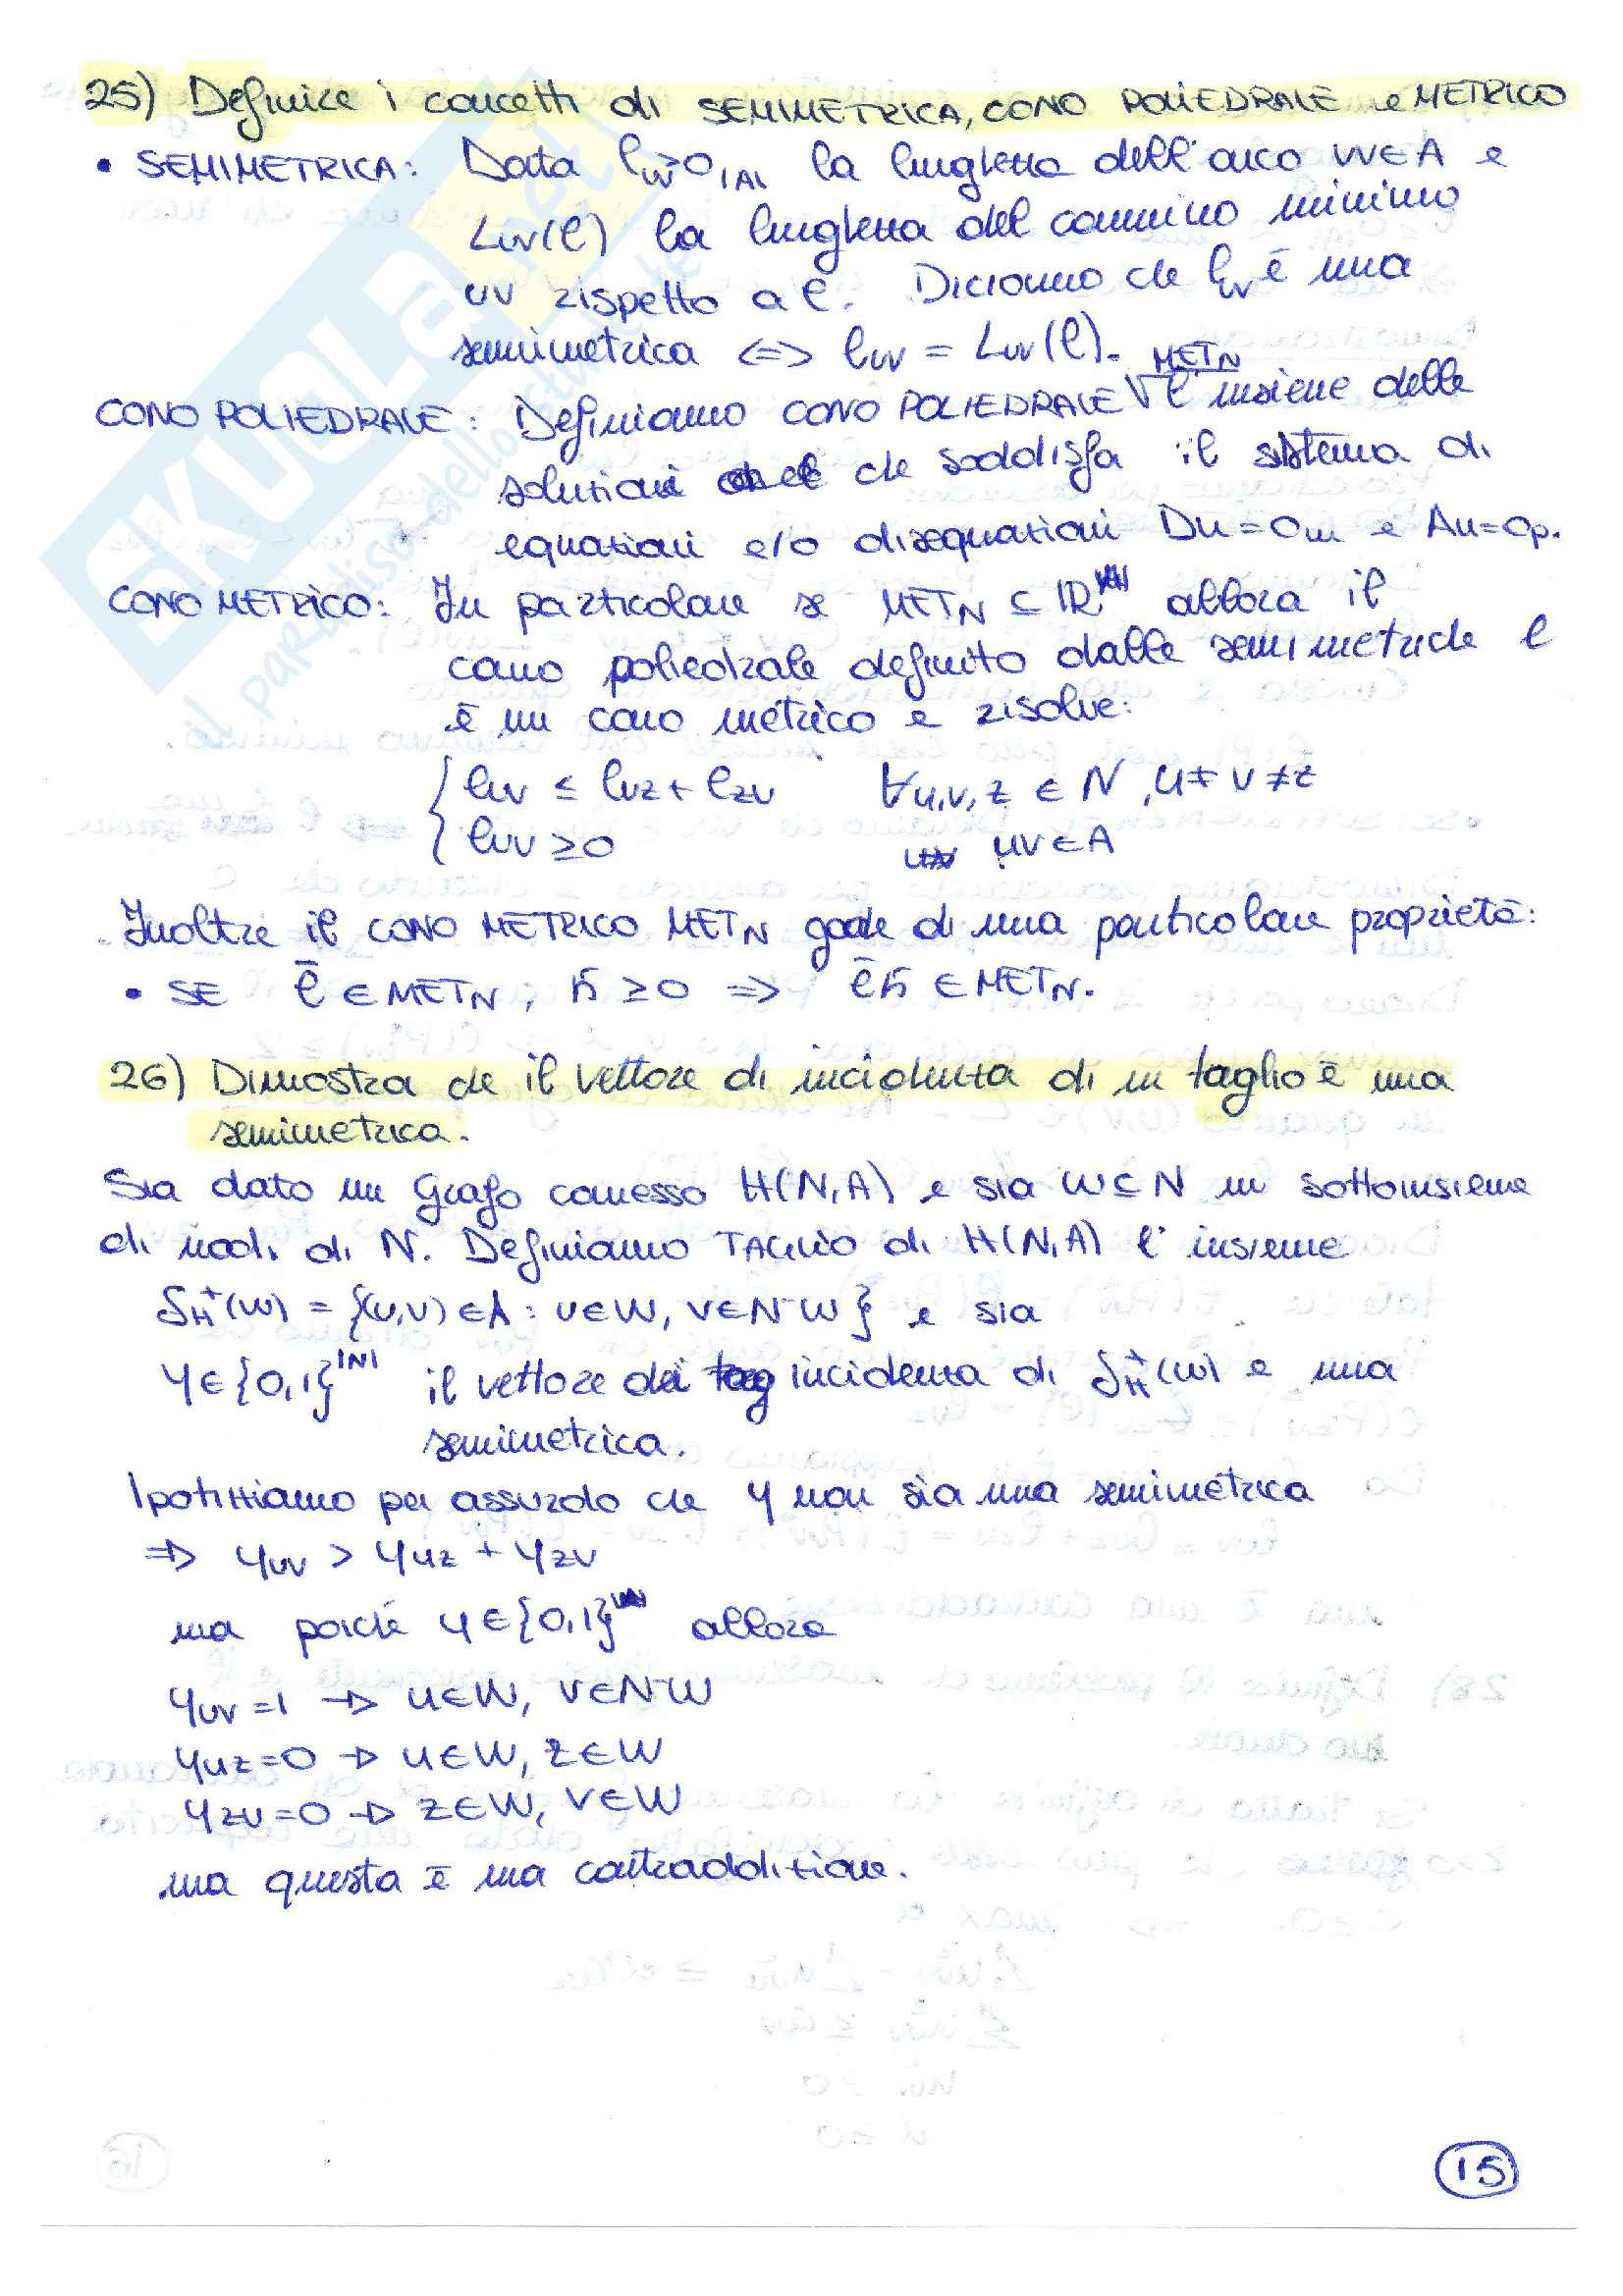 25) Definire i concetti di SEMIMETRICA, CONO POLIEDRALE e METRICO
• SEMIMETRICA: Data luv≥0|A| la lunghezza dell'arco uv∈A e
Luv(l) la lunghezza del cammino minimo
uv rispetto a l. Diciamo che luv è una
semimetrica <=> luv = Luv(l).
METN
CONO POLIEDRALE: Definiamo CONO POLIEDRALE √ l'insieme delle
soluzioni che soddisfa il sistema di
equazioni e/o disequazioni Du=0m e Au=0p.
CONO METRICO: In particolare se METN ⊆ IR allora il
cono poliedrale definito dalle semimetriche l
è un cono metrico e risolve:
{ luv ≤ luz + lzv ∀u,v,z ∈ N, u≠v≠z
luv ≥ 0 uv∈A
Inoltre il CONO METRICO METN gode di una particolare proprietà:
• SE l̄ ∈ METN, h̄ ≥ 0 => l̄h̄ ∈ METN.
26) Dimostra che il vettore di incidenza di un taglio è una
semimetrica.
Sia dato un Grafo connesso H(N,A) e sia W⊆N un sottoinsieme
di nodi di N. Definiamo TAGLIO di H(N,A) l'insieme
δH⁺(W) = {(u,v)∈A : u∈W, v∈N-W} e sia
y∈{0,1}|N| il vettore di incidenza di δH⁺(W) è una
semimetrica.
Ipotizziamo per assurdo che y non sia una semimetrica
=> yuv > yuz + yzv
ma poiché y∈{0,1} allora
yuv=1 → u∈W, v∈N-W
yuz=0 → u∈W, z∈W
yzv=0 → z∈W, v∈W
ma questa è una contraddizione.
15
SKUOLA.net
il paradiso dello studente